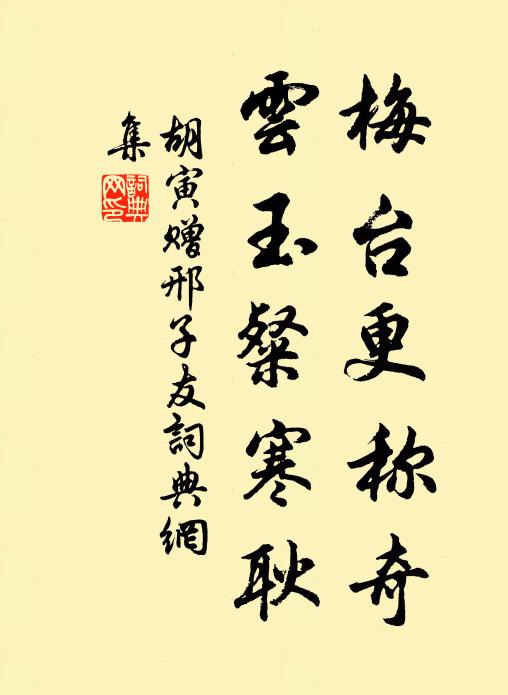 梅台更称奇
雲玉粲寒耿
胡寅赠邢子友詞典網
集
詞典
网印